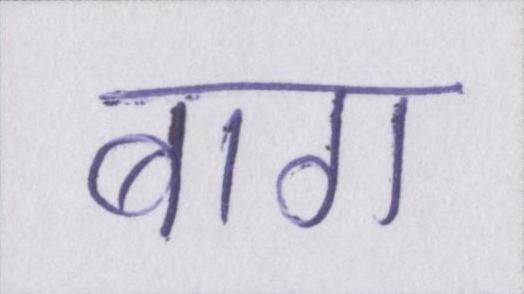 बाग